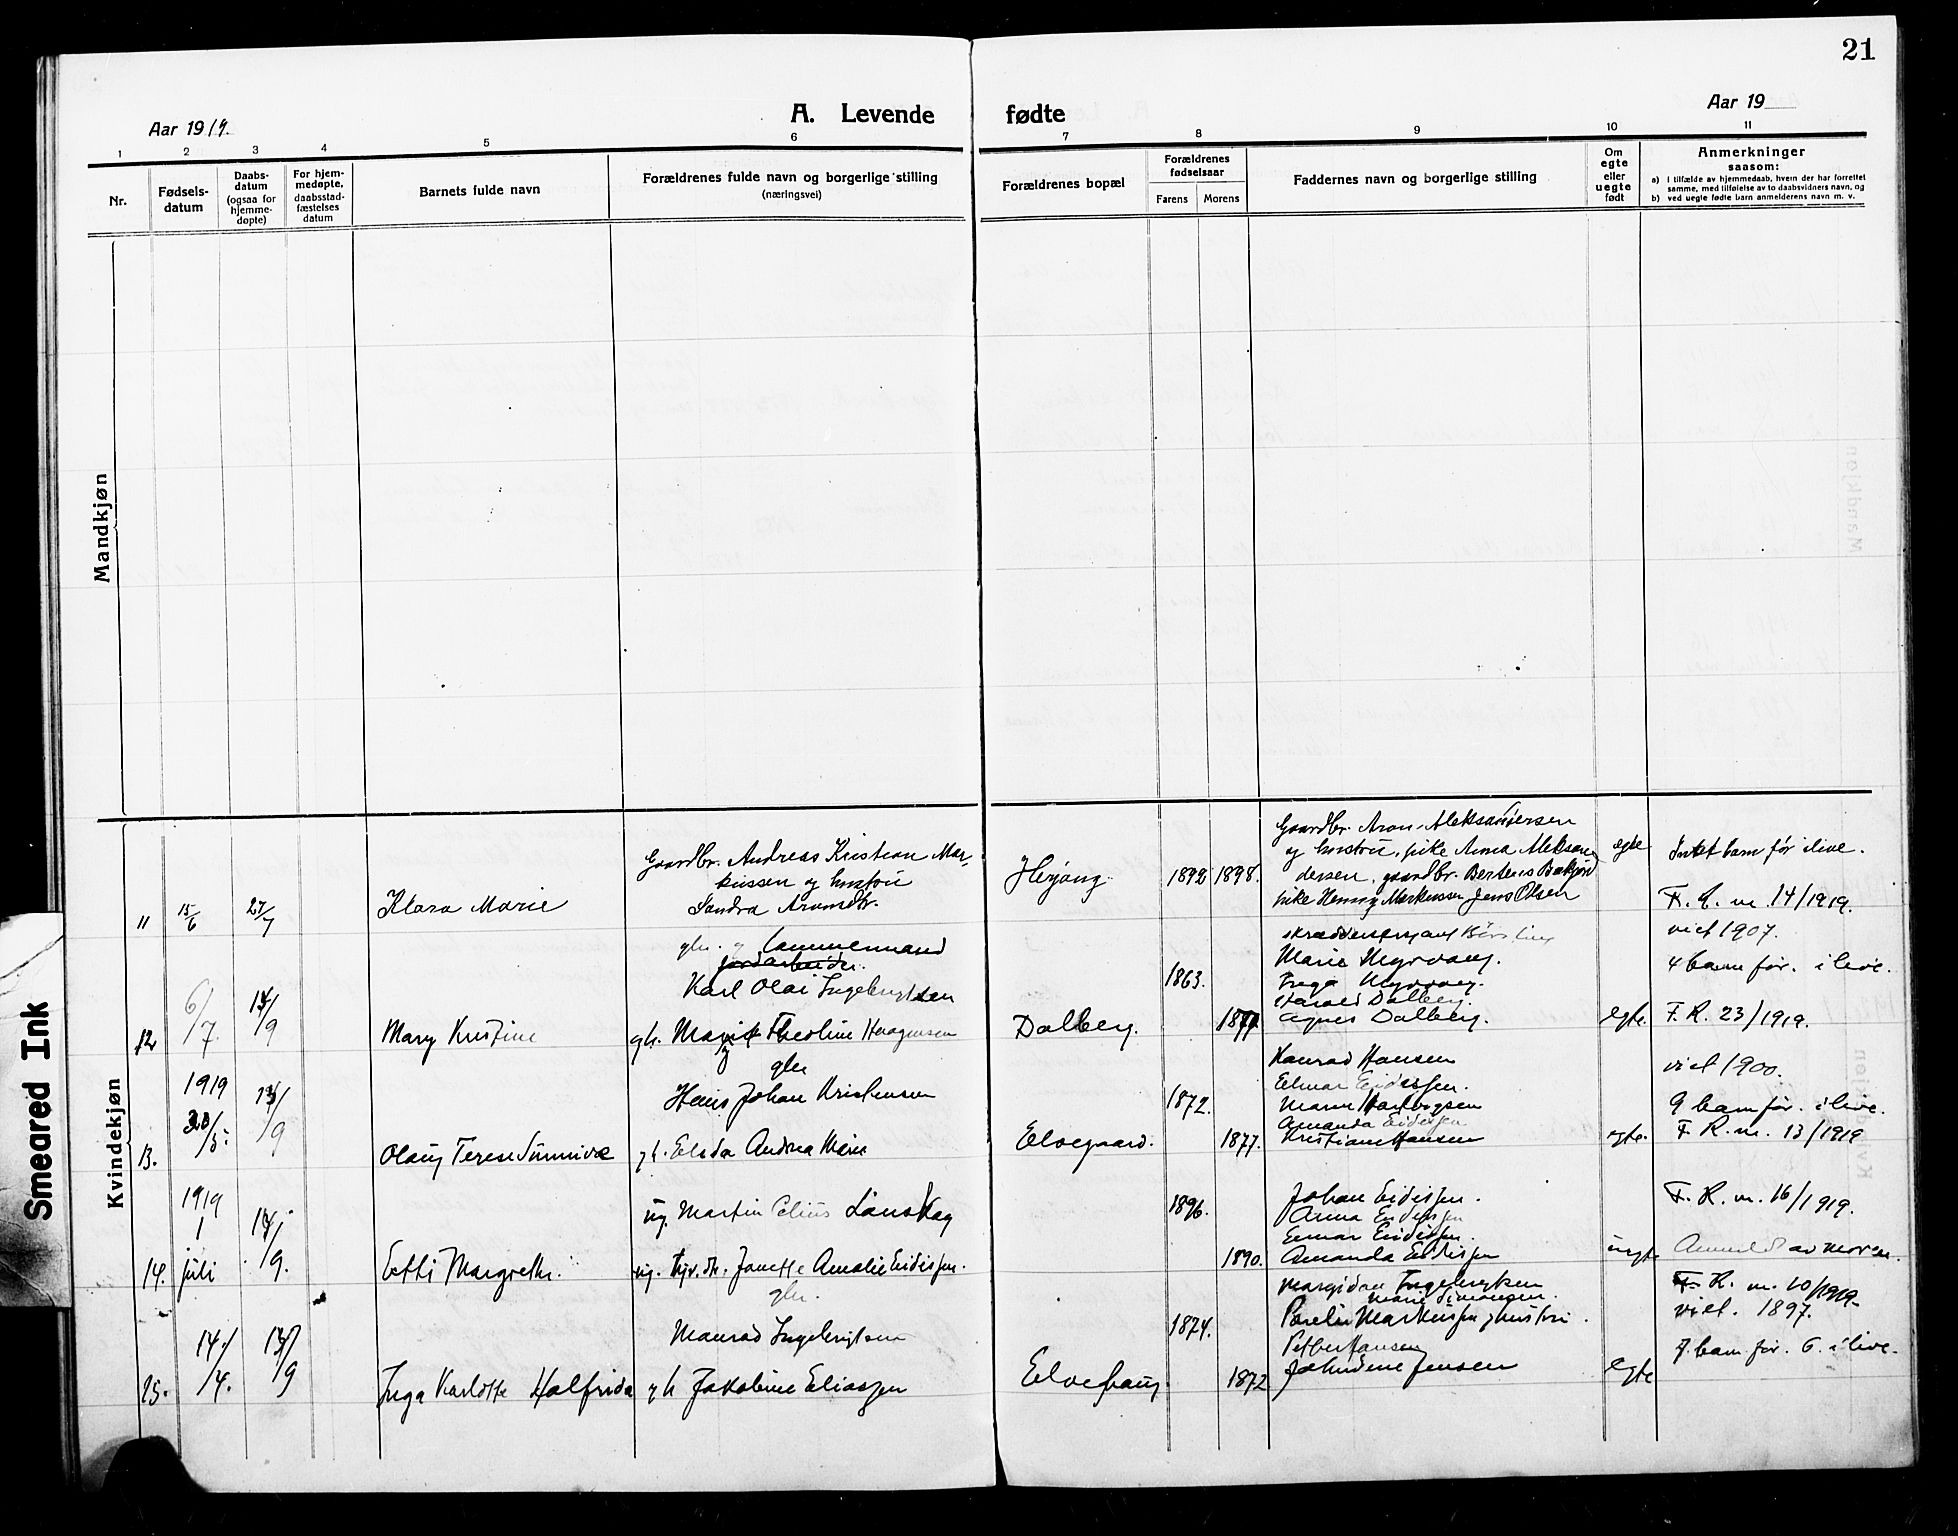 21
A. Levende fødte
Aar 1919.
Aar 19
1 2 3 4 5 6 7 8 9 10 11
Nr.
Fødsels-
datum
Daabs-
datum
(ogsaa for
hjemme-
døpte)
For hjem-
medøpte,
daabsstad-
fæstelses
datum
Barnets fulde navn
Forældrenes fulde navn og borgerlige stilling
(næringsvei)
Forældrenes bopæl
Forældrenes
fødselsaar
Farens
Morens
Faddernes navn og borgerlige stilling
Om
egte
eller
uegte
født
Anmerkninger
saasom:
a) i tilfælde av hjemmedaab, hvem der har forrettet
samme, med tilføielse av to daabsvidners navn, og
b) ved uegte fødte barn anmelderens navn m. v.
Mandkjøn
Kvindekjøn
Smeared Ink
11
15/6
27/7
Klara Marie
Gaardbr. Andreas Kristian Mar-
kussen og hustru
Sandra Aronsdr.
Herjang
1892
1898.
Gaardbr. Aron Aleksandersen
og hustru, pike Anna Aleksan-
dersen, gaardbr. Bertens
pike Henny Markussen Jens Olsen
egte
Intet barn før ilive.
F. R. nr. 14/1919.
12
6/7.
14/9
Mary Kristine
gbr. og Lænsmand
jordarbeider.
Karl Olai Ingebrigtsen
gh. Marie Theoline Haagensen
Dalberg.
1863.
1877
Marie Myrvang.
Inga Myrvang.
Harald Dalberg.
Agnes Dalberg.
egte.
viet 1907.
4 barn før. ilive.
F. R. 23/1919.
13.
1919
20/5.
13/9
Olaug Terese Sunniva
gbr
Hans Johan Kristensen
gh. Elida Andrea Marie
Elvegaard.
1872.
1877.
Konrad Hansen
Elmar Eidissen.
Marie Hartvigsen
Amanda Eidissen
Kristiane Hansen
egte.
viet 1900.
9 barn før. ilive.
F. R. nr. 13/1919
14.
1919
1
juli
14/9.
Etti Margrethe.
ug. Martin Celius Lanskag
ug. tjr. dtr. Janette Amalie Eidissen.
1896.
1890.
Johan Eidissen.
Anna Eidissen
Einar Eidissen.
Amanda Eidissen
uegte
F. R. nr. 16/1919.
Anmeldt av moren.
15.
14./4.
13/9
Inga Karlotte Halfrida
gbr.
Manrad Ingebrigtsen
gh Jakobine Eliassen
Elvegaard
1874.
1872
Margidne Ingebrigtsen
Marie Simonsen.
Parelius Markussen og hustru.
Petter Hansen
Johndine Jensen
egte
F. R. nr. 10/1919.
viet. 1897.
7 barn før. 6. ilive.